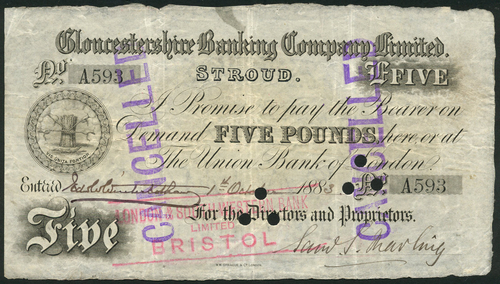 Gloucestershire Banking Company Limited.
No A593
STROUD.
£FIVE
I Promise to pay the Bearer on
Demand FIVE POUNDS, here, or at
The Union Bank of London.
Entered 1st 1883
No A593
For the Directors and Proprietors.
Five
CANCELLED
CANCELLED
LONDON & SOUTH WESTERN BANK
LIMITED
BRISTOL